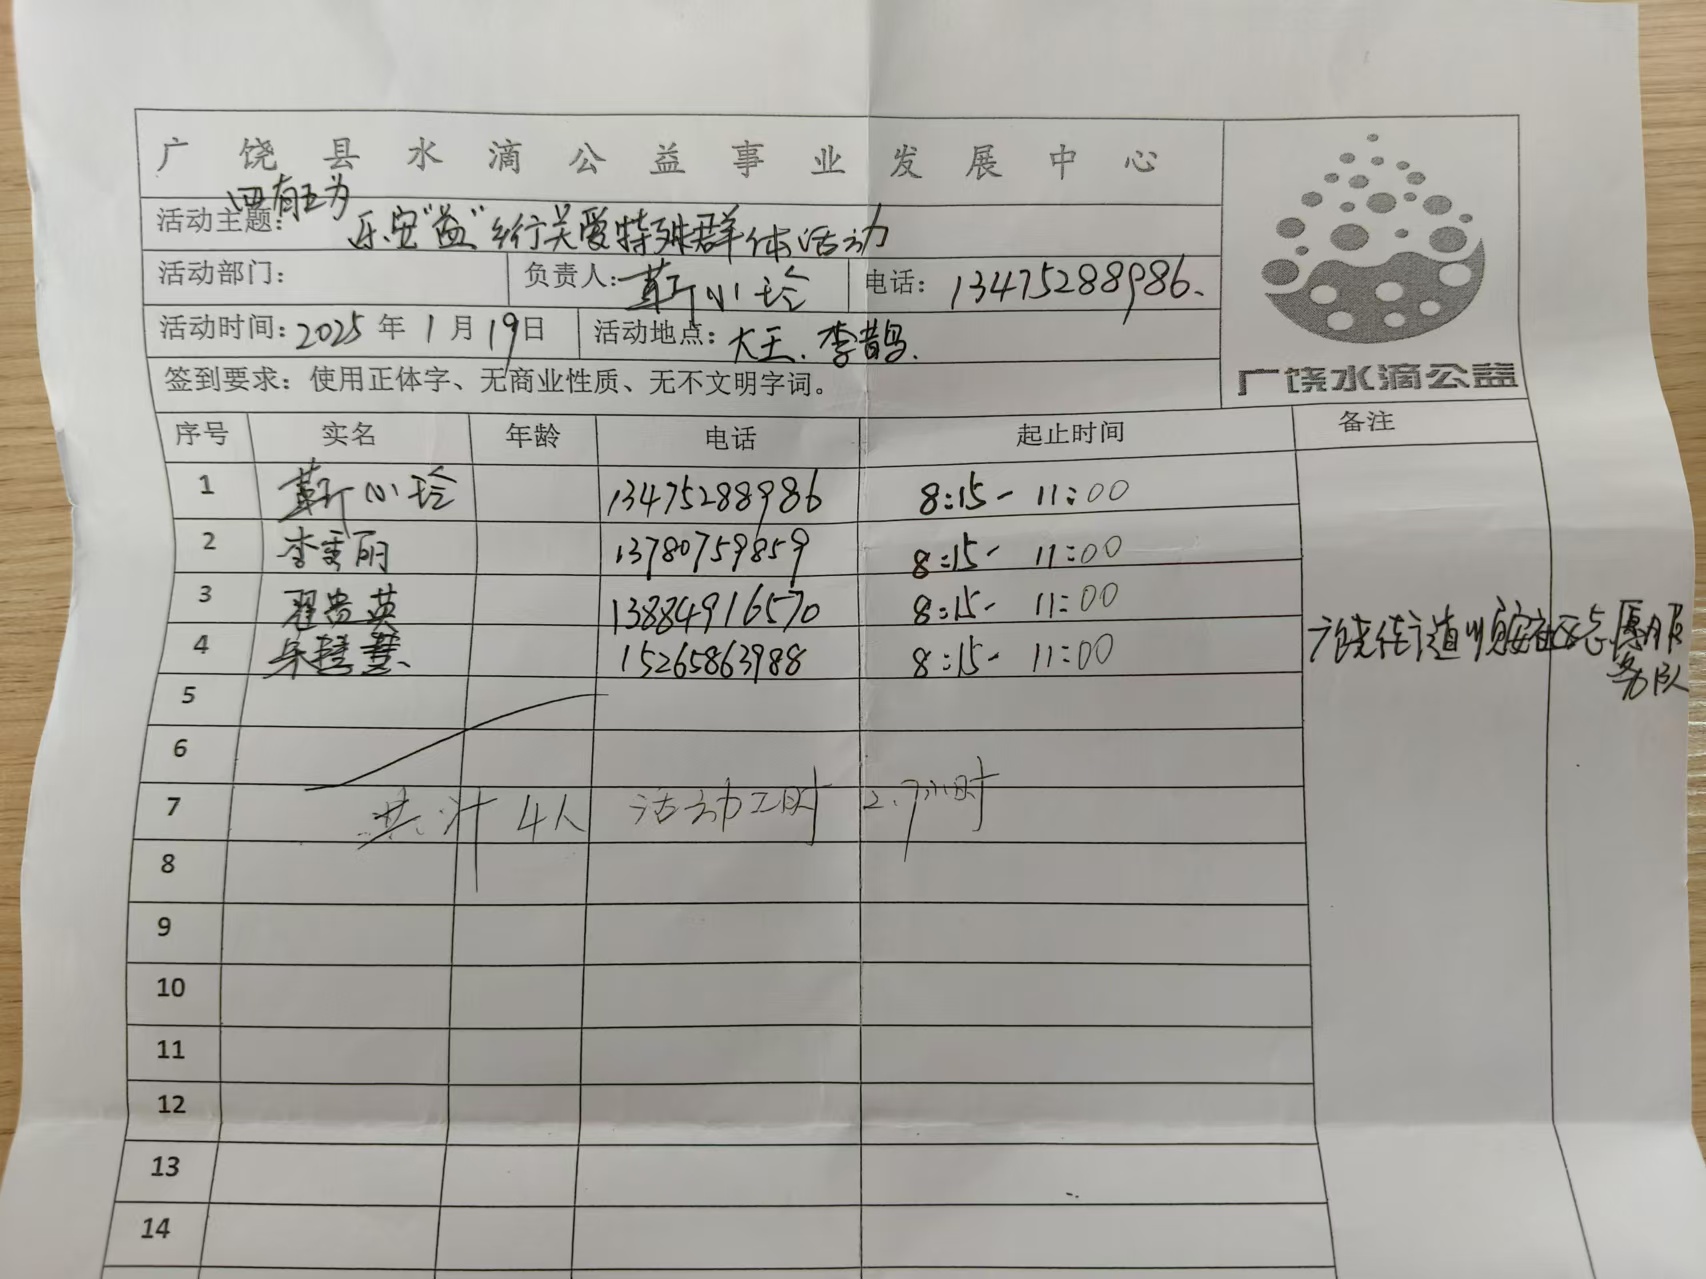 广饶县水滴公益事业发展中心
四有五为
活动主题：乐安“益”乡行关爱特殊群体活动
活动部门： 负责人：靳小玲 电话：13475288986、
活动时间：2025年1月19日 活动地点：大王、李鹊、
签到要求：使用正体字、无商业性质、无不文明字词。
广饶水滴公益
序号 实名 年龄 电话 起止时间 备注
1 靳小玲 13475288986 8:15- 11:00
2 李秀丽 13780759859 8:15- 11:00
3 翟贵英 13884916570 8:15- 11:00
4 慧 15265863988 8:15- 11:00
广饶街道顺安社区志愿服
务队
5
6
7 共计4人 活动工时 2.7小时
8
9
10
11
12
13
14